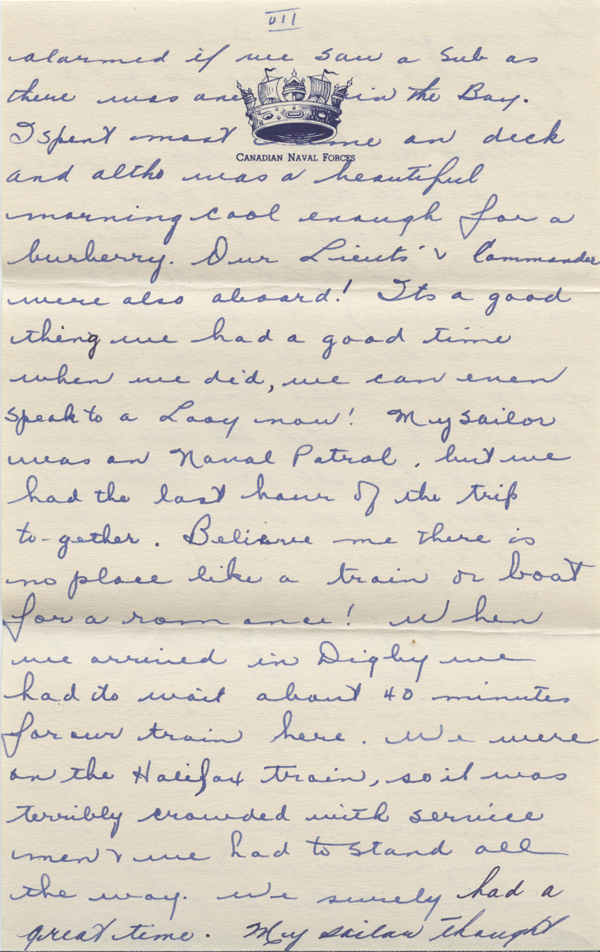 VII
alarmed if we saw a sub as
there was one in the Bay.
CANADIAN NAVAL FORCES
I spent most time on deck
and altho was a beautiful
morning cool enough for a
burberry. Our Lieuts' & Commander
were also aboard! Its a good
thing we had a good time
when we did, we can even
speak to a Looy now! My sailor
was on Naval Patrol, but we
had the last hour of the trip
to-gether. Believe me there is
no place like a train or boat
for a romance! When
we arrived in Digby we
had to wait about 40 minutes
for our train here. We were
on the Halifax train, so it was
terribly crowded with service
men & we had to stand all
the way. We surely had a
great time. My sailor thought